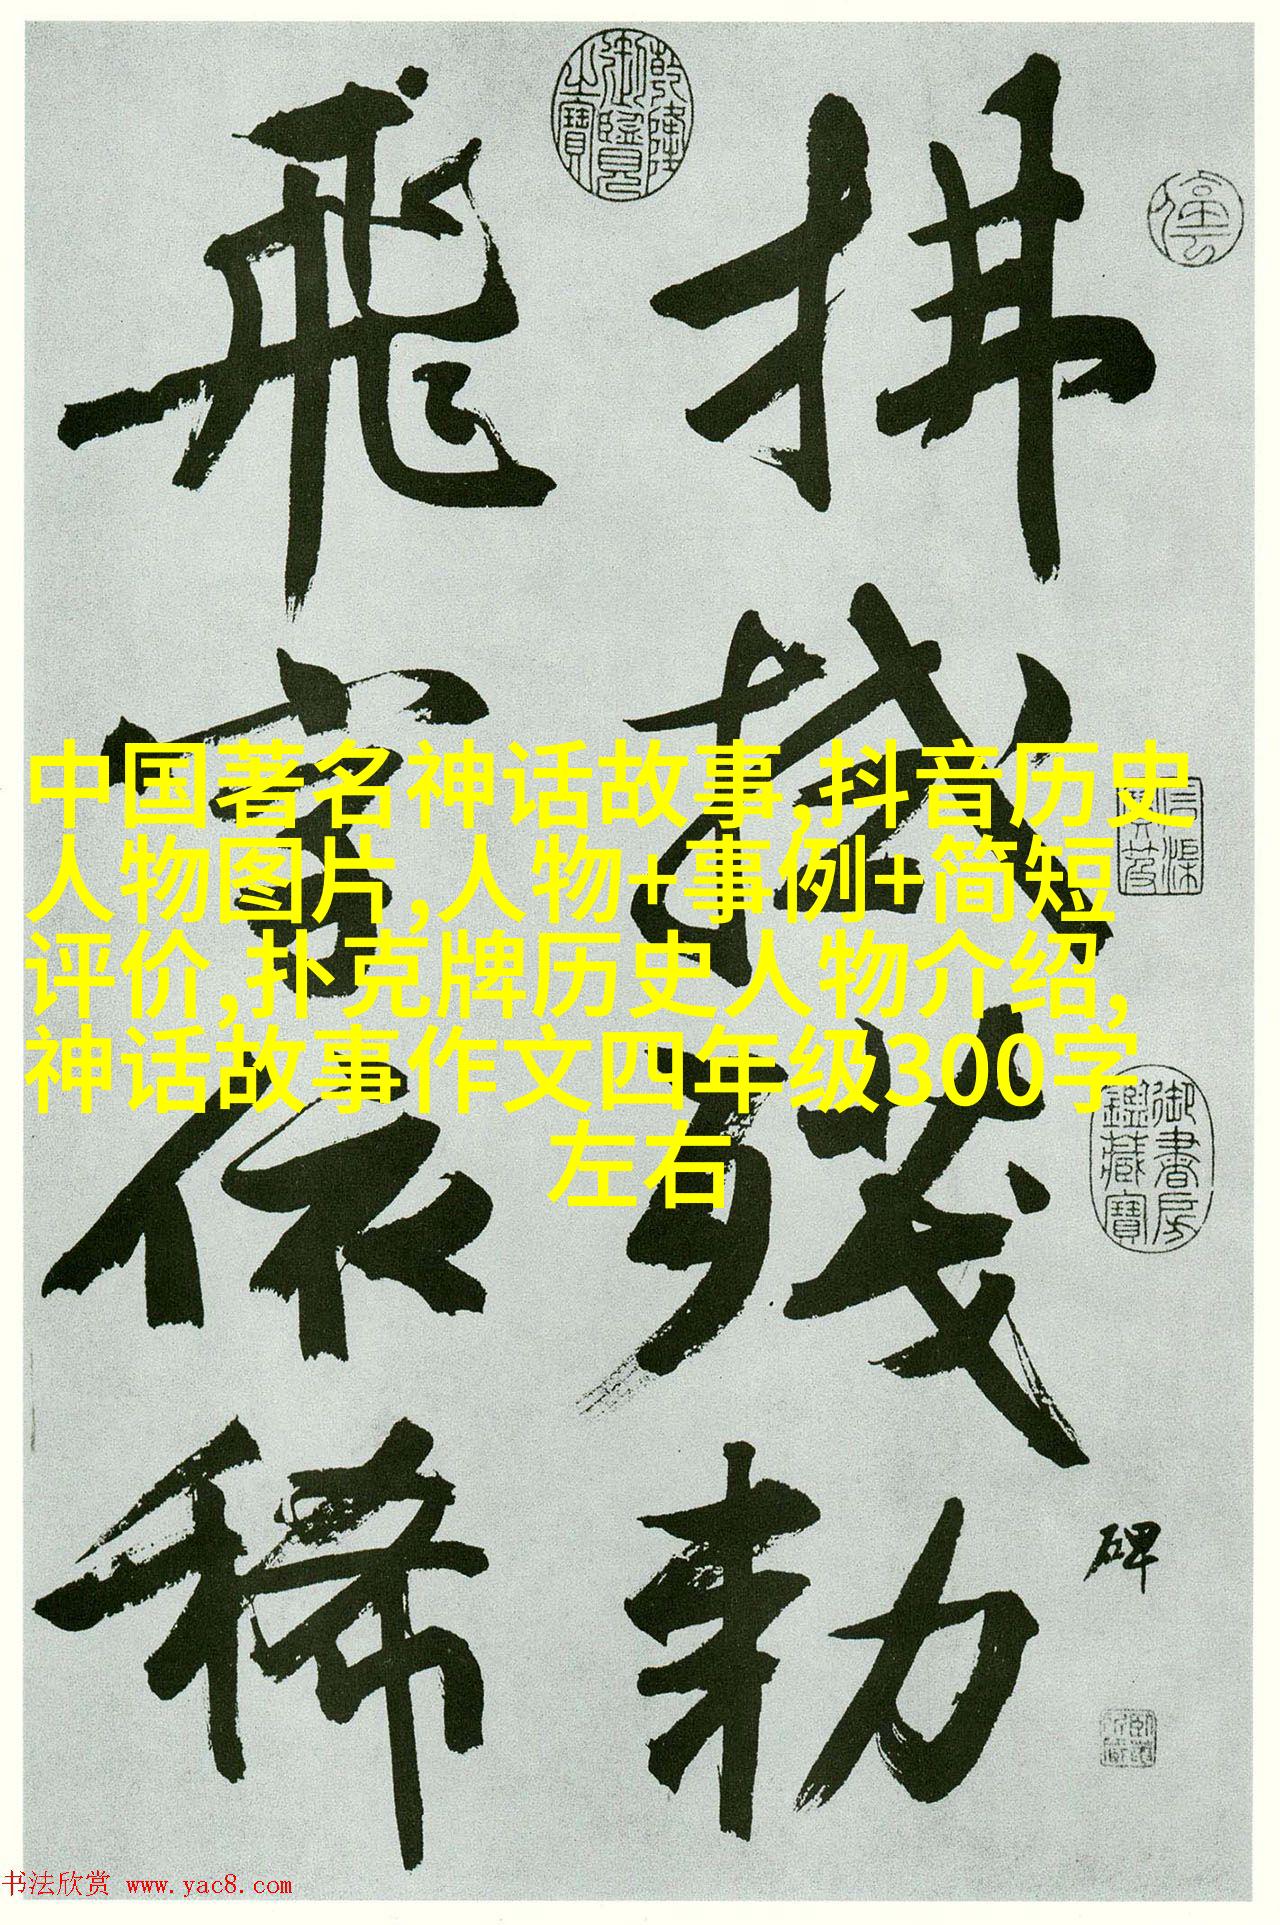 拂拭殘勅
碑
飛字依稀
乾隆御覽之寶
御書房鑑藏寶
中国著名神话故事,抖音历史
人物图片,人物+事例+简短
评价,扑克牌历史人物介绍,
神话故事作文四年级300字
左右
书法欣赏 www.yac8.com